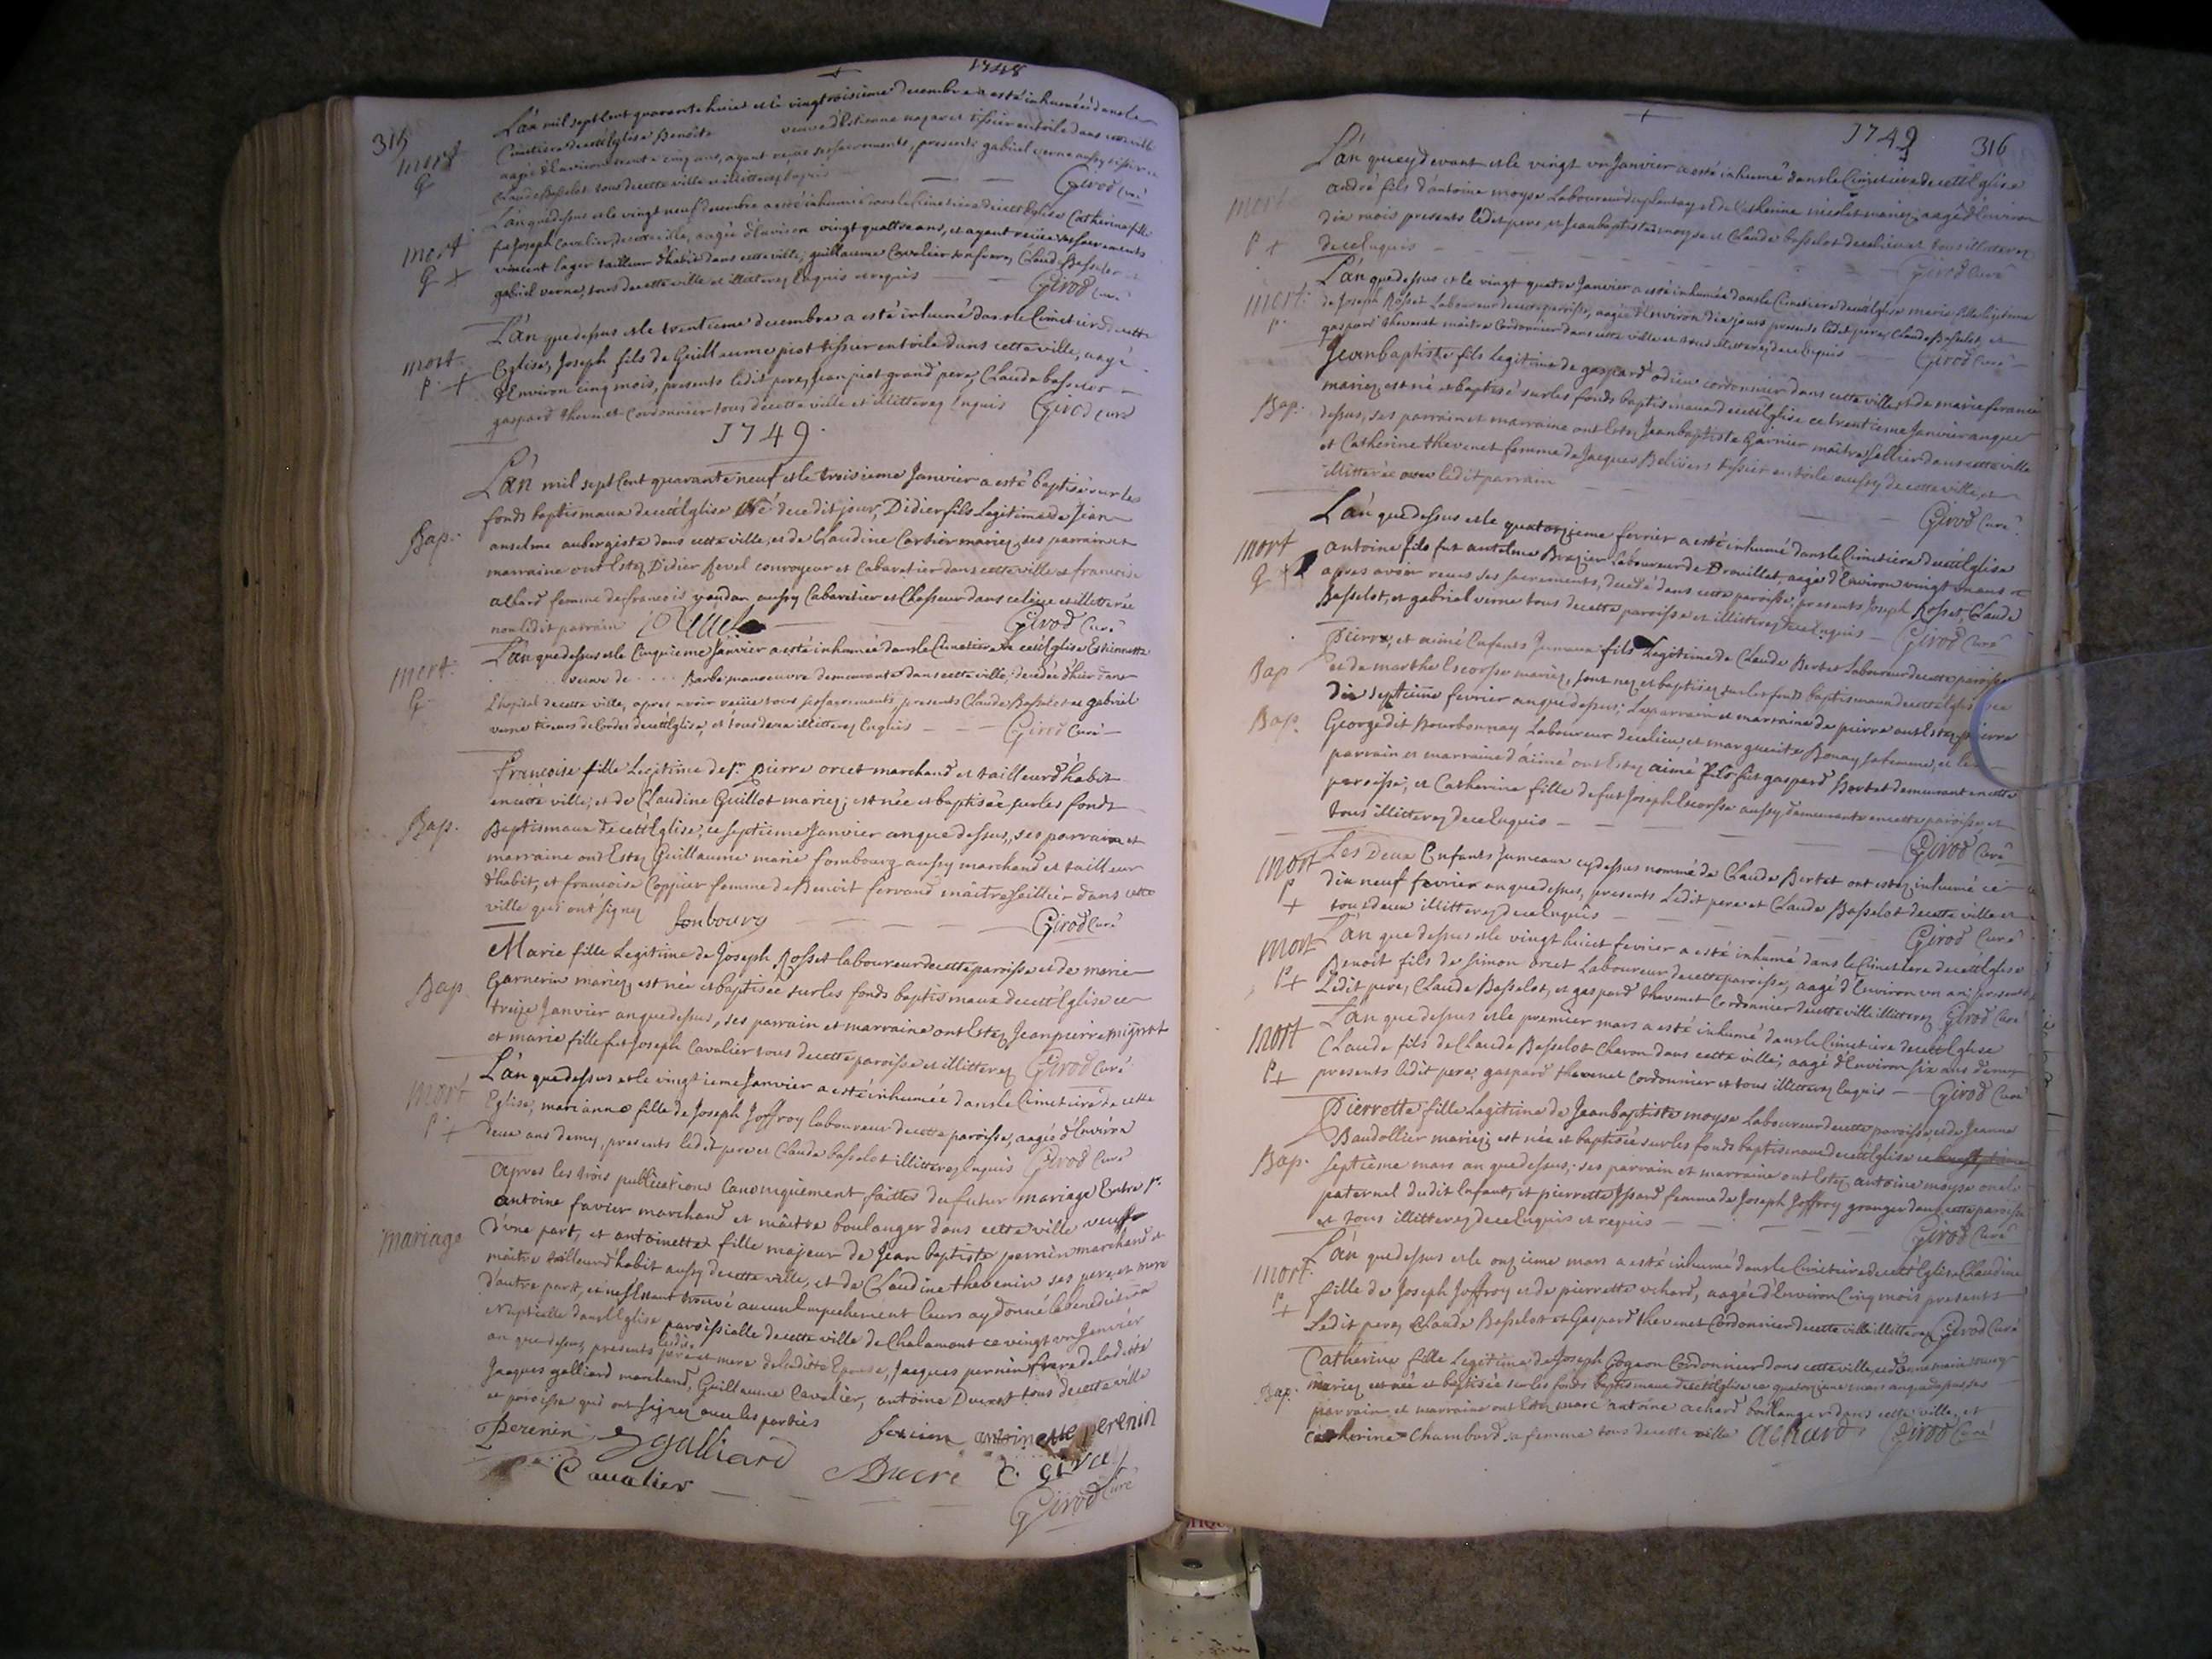 1748
315
L'an mil sept Cent quarante huict et le vingt troisieme decembre a esté inhumée dans le
Cimetiere de cett Eglise Benoite veuve d'Estienne tissier en toile dans cette ville
aagée d'Environ cinq ans, ayant reçue ses sacrements, presents gabriel verne aussy tissier
Claude Basselot tous de cette ville et illitterez
Girod Curé
mort
G
L'an que dessus et le vingt neuf decembre a esté inhumée dans le Cimetiere de cett Eglise Catherine fille
fut Joseph Cavalier de cette ville, aagée d'Environ vingt quattre ans, et ayant reçue ses sacrements
vincent lager tailleur d'habit dans cette ville, guillaume Cavalier son frere, Claude Basselot et
gabriel verne, tous de cette ville et illitterez Enquis et requis
Girod Curé
mort
G +
L'an que dessus et le trentieme decembre a esté inhumé dans le Cimetiere de cette
Eglise, Joseph fils de Guillaume piot tissier en toile dans cette ville, aagé
d'Environ cinq mois, presents ledit pere, Jean piot grand pere, Claude basselot
gaspard thevenet Cordonnier tous de cette ville et illitterez Enquis Girod Curé
mort
P +
1749
L'an mil sept Cent quarante neuf et le troisieme Janvier a esté baptisé sur les
fonds baptismaux de cett Eglise Né de ce dit jour, Didier fils Legitime de Jean
anselme aubergiste dans cette ville, et de Claudine Cartier mariez, ses parrain et
marraine ont Estez Didier Revel convoyeur et Cabaretier dans cette ville et francoise
allard femme de francois yaudan aussy Cabaretier et Chasseur dans ce lieu et illitterée
non ledit parrain Revel Girod Curé
Bap.
L'an que dessus et le Cinquieme Janvier a esté inhumée dans le Cimetiere de cett Eglise Estiennette
veuve de Barbe manoeuvre demeurante dans cette ville, decedée d'hier dans
L'hopital de cette ville, apres avoir reçue tous ses sacrements, presents Claude Basselot et gabriel
verne tireurs de Cordes de cett Eglise, et tous deux illitterez Enquis Girod Curé
mort.
G
francoise fille Legitime de sr. pierre orcet marchand et tailleur d'habit
en cette ville, et de Claudine Guillot mariez, est née et baptisée sur les fonds
Baptismaux de cett Eglise, ce septieme Janvier an que dessus, ses parrain et
marraine ont Estez Guillaume marie fombourg aussy marchand et tailleur
d'habit, et francoise Coppier femme de Benoit ferrand maitre sellier dans cette
ville qui ont signez fonbourg Girod Curé
Bap.
Marie fille Legitime de Joseph Rosset laboureur de cette paroisse et de marie
Garnerin mariez, est née et baptisée sur les fonds baptismaux de cett Eglise ce
treize Janvier an que dessus, ses parrain et marraine ont Estez Jean pierre mignot
et marie fille fut Joseph Cavalier tous de cette paroisse et illitterez Girod Curé
Bap
L'an que dessus et le vingtieme Janvier a esté inhumée dans le Cimetiere de cette
Eglise, marianne fille de Joseph Joffroy laboureur de cette paroisse, aagée d'Environ
deux ans demy, presents ledit pere et Claude basselot illitterez Enquis Girod Curé
mort
P +
Apres les trois publications Canoniquement faittes du futur mariage Entre sr.
antoine favier marchand et maitre boulanger dans cette ville veuf
d'une part, et antoinette fille majeur de Jean baptiste perrenin marchand et
maitre tailleur d'habit aussy de cette ville, et de Claudine thevenin ses pere et mere
d'autre part, et n'estant trouvé aucun Empechement leurs ay donné la benediction
Nuptialle dans l'Eglise paroissialle de cette ville de Chalamont ce vingt un Janvier
an que dessus, presents lesdits pere et mere de laditte Epouse, Jacques perrenin frere de laditte
Jacques galliard marchand, Guillaume Cavalier, antoine Ducret tous de cette ville
et paroisse qui ont signez avec les parties
mariage
Perenin J galliard favier antoinette perenin
Cavalier Ducre
Girod Curé
1749
316
L'an que cy devant et le vingt un Janvier a esté inhumé dans le Cimetiere de cett Eglise
andré fils d'antoine moyse Laboureur et de Catherine nicolet mariez, aagé d'Environ
dix mois presents ledit pere, et Jean baptiste moyse et Claude basselot de ce lieu et tous illitterez
de ce Enquis Girod Curé
mort
P +
L'an que dessus et le vingt quatre Janvier a esté inhumée dans le Cimetiere de cett Eglise marie fille legitime
de Joseph Rosset Laboureur de cette paroisse, aagée d'Environ dix jours presents ledit pere, Claude Basselot, et
gaspard thevenet maitre Cordonnier dans cette ville et tous illitterez de ce Enquis Girod Curé
mort.
P.
Jean baptiste fils Legitime de gaspard odieu cordonnier dans cette ville, et de marie ferand
mariez, est né et baptisé sur les fonds baptismaux de cett Eglise ce trentieme Janvier an que
dessus, ses parrain et marraine ont Estez Jean baptiste Garnier maitre sellier dans cette ville
et Catherine thevenet femme de Jacques Belivers tissier en toile aussy de cette ville, et
illitterée avec ledit parrain
Girod Curé
Bap.
L'an que dessus et le quatorzieme fevrier a esté inhumé dans le Cimetiere de cett Eglise
antoine fils fut antelme Brazier Laboureur de Drouillet, aagé d'Environ vingt un ans et
apres avoir reçu ses sacrements, decedé dans cette paroisse, presents Joseph Rosset Claude
Basselot, et gabriel verne tous de cette paroisse et illitterez de ce Enquis Girod Curé
mort
G +
Pierre, et aimé Enfants Jumeaux fils Legitime de Claude Bertet Laboureur de cette paroisse
et de marthe Escorsse mariez, sont nez et baptisez sur les fonds baptismaux de cett Eglise ce
dix septieme fevrier an que dessus; Les parrain et marraine de pierre ont Estez pierre
George dit Bourbonnay Laboureur de ce lieu et marguerite Bonay sa femme, et les
parrain et marraine d'aimé ont Estez aimé fils fut gaspard Bertet demeurant en cette
paroisse, et Catherine fille de fut Joseph Escorsse aussy demeurante en cette paroisse et
tous illitterez de ce Enquis
Girod Curé
Bap
Bap.
Les deux Enfants Jumeaux cy dessus nommé de Claude Bertet ont estez inhumé ce
dix neuf fevrier an que dessus, presents Ledit pere et Claude Basselot de cette ville et
tous deux illitterez de ce Enquis
Girod Curé
mort
P
+
L'an que dessus et le vingt huict fevrier a esté inhumé dans le Cimetiere de cett Eglise
Benoit fils de simon orcet Laboureur de cette paroisse, aagé d'Environ un an, presents
Ledit pere, Claude Basselot, et gaspard thevenet Cordonnier de cette ville illitterez Girod Curé
mort
P +
L'an que dessus et le premier mars a esté inhumé dans le Cimetiere de cett Eglise
Claude fils de Claude Basselot Charon dans cette ville, aagé d'Environ six ans demy
presents ledit pere, gaspard thevenet Cordonnier et tous illitterez Enquis Girod Curé
mort
P +
Pierrette fille Legitime de Jean baptiste moyse Laboureur de cette paroisse, et de Jeanne
Baudollier mariez, est née et baptisée sur les fonds baptismaux de cett Eglise ce
septieme mars an que dessus, ses parrain et marraine ont Estez antoine moyse oncle
paternel dudit Enfant, et pierrette Issard femme de Joseph Joffroy granger dans cette paroisse
et tous illitterez de ce Enquis et requis
Girod Curé
Bap.
L'an que dessus et le onzieme mars a esté inhumé dans le Cimetiere de cett Eglise Claudine
fille de Joseph Joffroy et de pierrette vchard, aagée d'Environ Cinq mois presents
Ledit pere, Claude Basselot et Gaspard thevenet Cordonnier de cette ville illitterez Girod Curé
mort.
P
+
Catherine fille Legitime de Joseph Gogeon Cordonnier dans cette ville, et
mariez est née et baptisée sur les fonds baptismaux de cett Eglise ce quatorzieme mars an que dessus ses
parrain et marraine ont Estez marc antoine achard boulanger dans cette ville, et
Catherine Chambard sa femme tous de cette ville achard Girod Curé
Bap.